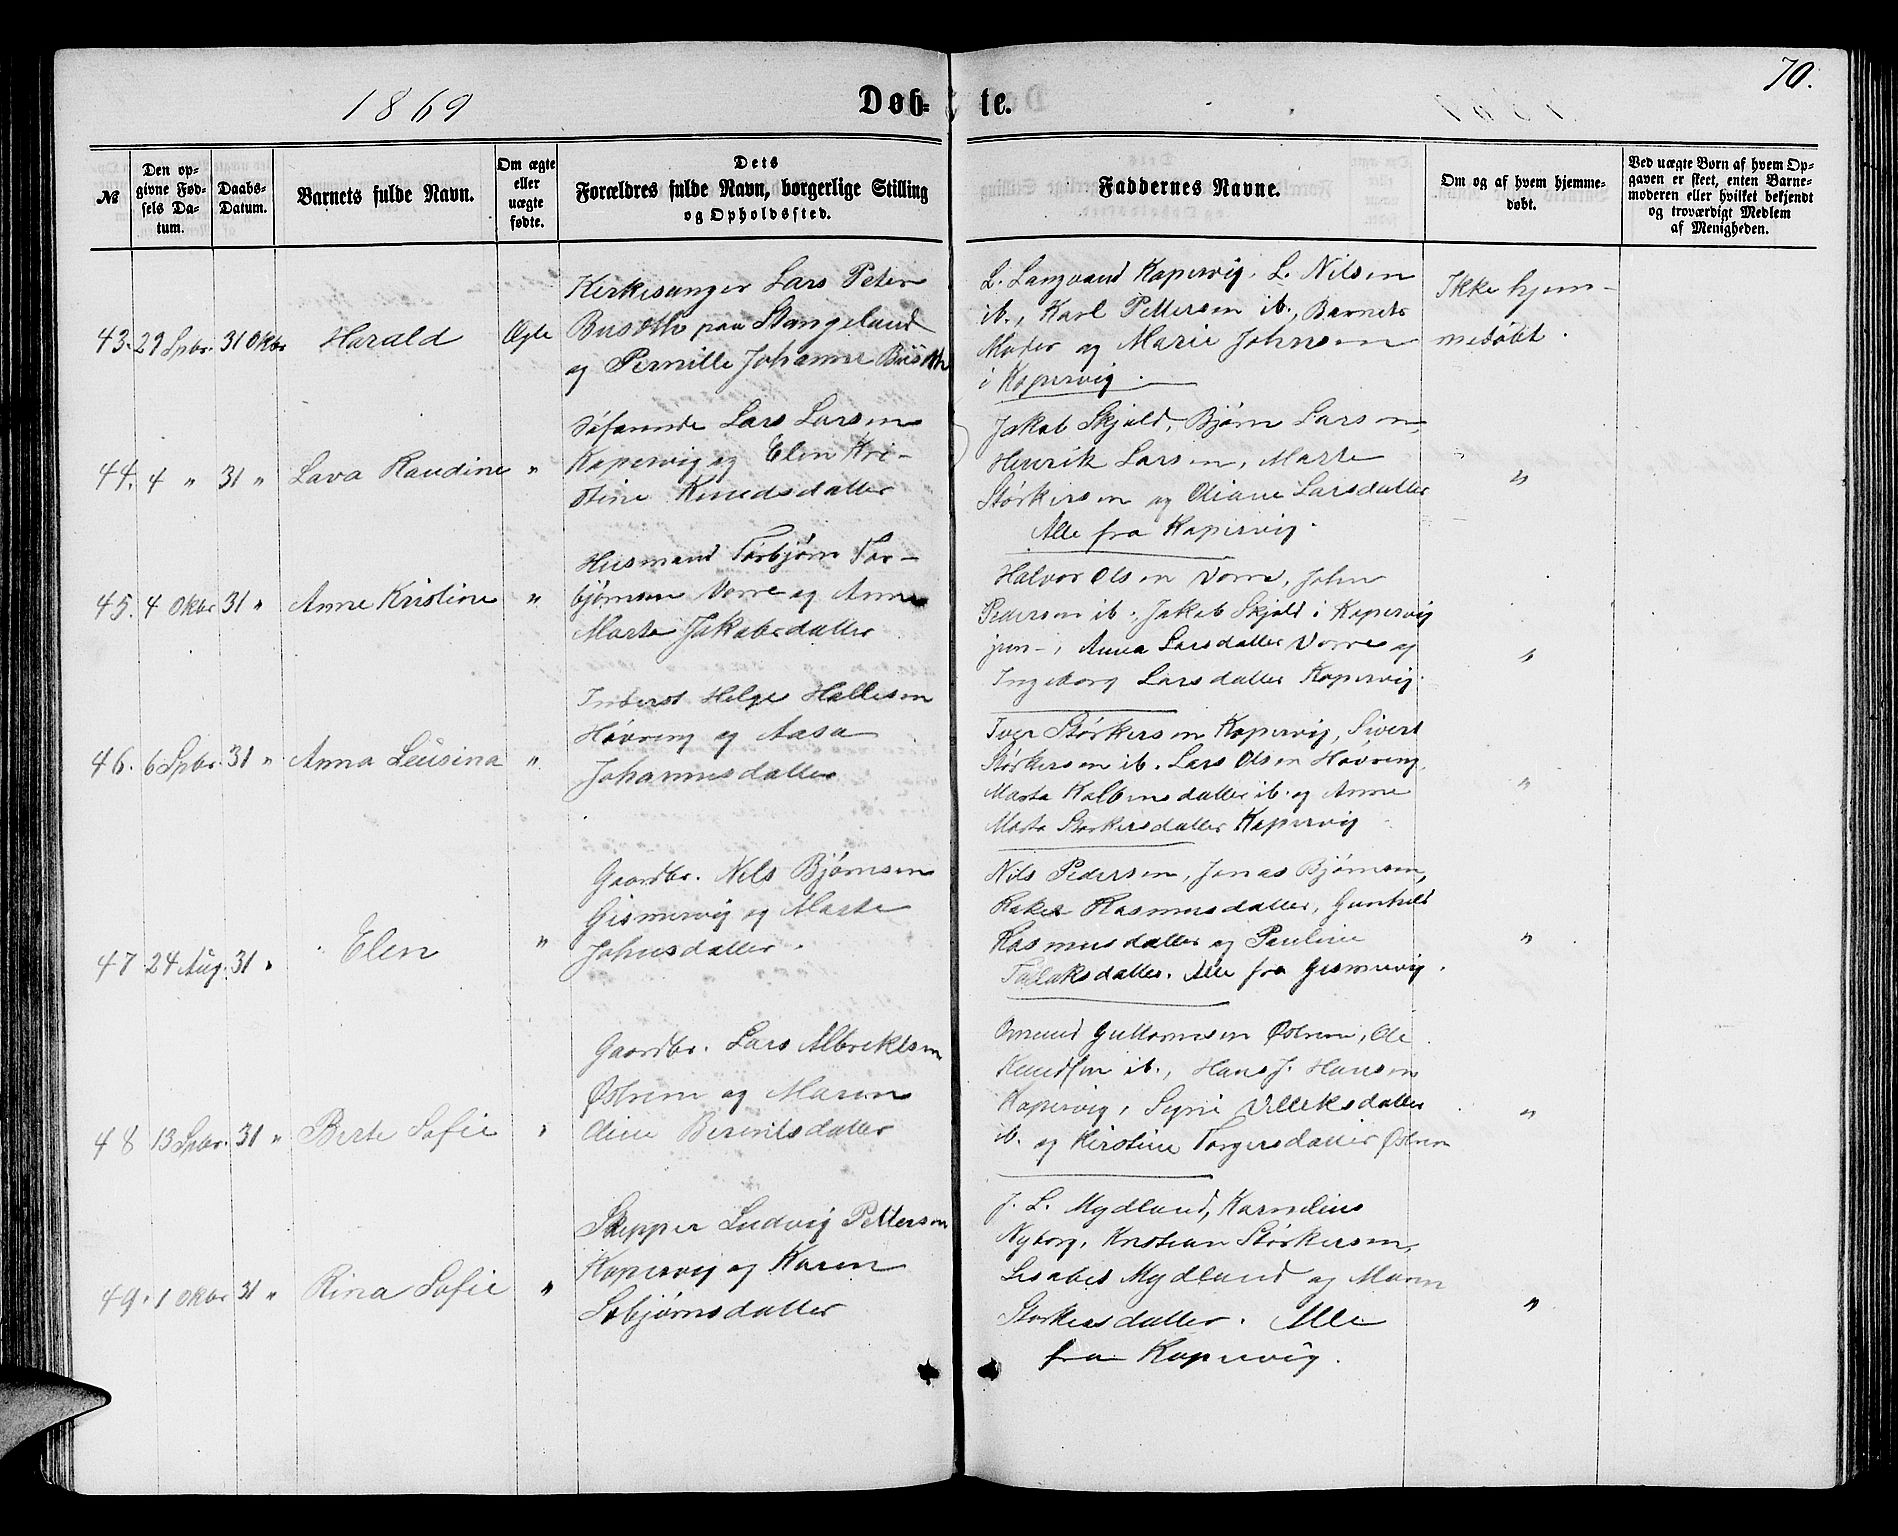 1869
Døb-
te.
70.
№
Den op-
givne Fød-
sels Da-
tum.
Daabs-
Datum.
Barnets fulde Navn.
Om ægte
eller
uægte
fødte.
Dets
Forældres fulde Navn, borgerlige Stilling
og Opholdssted.
Faddernes Navne.
Om og af hvem hjemme-
døbt.
Ved uægte Børn af hvem Op-
gaven er skeet, enten Barne-
moderen eller hvilket bekjendt
og troværdigt Medlem
af Menigheden.
43. 29 Spbr. 31 Okbr Harald Ægte
Kirkesanger Lars Peter
Busoth paa Stangeland
og Pernille Johanne Busoth
L. Langaand Kopervig, L. Nilsen
ib., Karl Pettersen ib., Barnets
Moder og Marie Johnsen
i Kopervig.
Ikke hjem-
medøbt.
44. 4 " 31 " Lava Raudine "
Søfarende Lars Larsen
Kopervig og Elen Kri-
stine Knudsdatter
Jakob Skjold, Bjørn Larsen,
Henrik Larsen, Marte
Størkersen og Oliane Larsdatter
Alle fra Kopervig.
"
45. 4 Okbr 31 " Anne Kristine "
Husmand Torbjørn Tor-
bjørnsen Vorre og Anne
Marte Jakobsdatter
Halvor Olsen Vorre, John
Pedersen ib., Jakob Skjold i Kopervig
jun-, Anna Larsdatter Vorre og
Ingeborg Larsdatter Kopervig.
"
46. 6 Spbr. 31 " Anna Leusina "
Inderst Helge Hallesen
Høvring og Aasa
Johannesdatter
Iver Størkersen Kopervig, Sivert
Størkersen ib. Lars Olsen Høvring,
Marta Kolbensdatter ib. og Anne
Marta Størkersdatter Kopervig
"
47 24 Aug. 31 " Elen "
Gaardbr. Nils Bjørnsen
Gismervig og Marte
Johnsdatter.
Nils Pedersen, Jonas Bjørnsen,
Rakel Rasmusdatter, Gunhild
Rasmusdatter og Pauline
Tollaksdatter. Alle fra Gismervig.
"
48 13 Spbr. 31 " Berte Sofie "
Gaardbr. Lars Albrektsen
Østrem og Maren
Oline Berentsdatter
Omund Guttormsen Østrem, Ole
Knudsen ib., Hans J. Hansen
Kopervig, Signe Villeksdatter
ib. og Kirstine Torgersdatter Østrem
"
49. 1 Okbr 31 " Rina Sofie "
Skipper Ludvig Pettersen
Kopervig og Karen
Sebjørnsdatter
J. L. Mydland, Kornelius
Nyborg, Kristian Størkersen,
Lisabet Mydland og Maren
Størkersdatter. Alle
fra Kopervig.
"